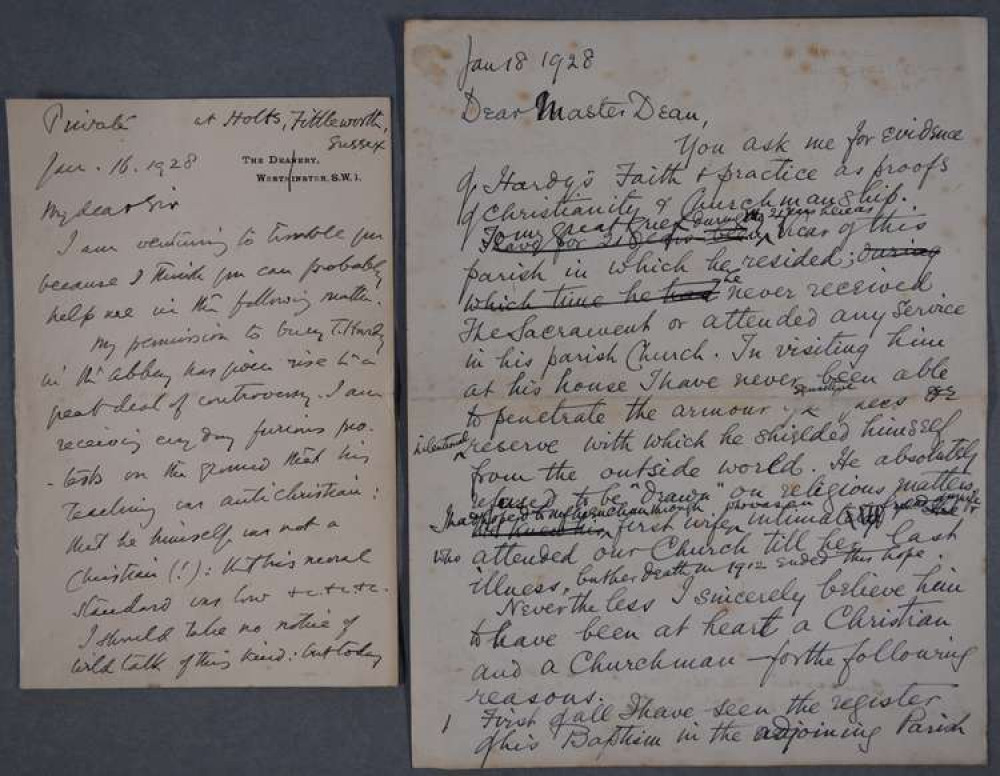 Private at Holts, Fittleworth,
Sussex
Jan. 16. 1928
THE DEANERY,
WESTMINSTER, S.W.1.
My dear Sir
I am venturing to trouble you
because I think you can probably
help me in the following matter.
My permission to bury T. Hardy
in the abbey has given rise to a
great deal of controversy. I am
receiving every day furious pro-
-tests on the ground that his
teaching was antichristian:
that he himself was not a
Christian (!): that his moral
standard was low &c. &c. &c.
I should take no notice of
wild talk of this kind: but today
Jan 18 1928
Dear Master Dean,
You ask me for evidence
of Hardy's Faith & practice as proofs
of Christianity & Churchmanship.
To my great grief during the 21 years I was
I have for 21 years been Vicar of this
parish in which he resided; during
which time he had he never received
The Sacrament or attended any Service
in his parish Church. In visiting him
at his house I have never been able
to penetrate the armour of sensitive
reserve with which he shielded himself
from the outside world. He absolutely
refused to be "drawn" on religious matters.
I had hoped to
first wife intimately
who attended our Church till her last
illness, but her death in 1912 ended this hope.
Nevertheless I sincerely believe him
to have been at heart a Christian
and a Churchman — for the following
reasons.
1 First of all I have seen the register
of his Baptism in the adjoining Parish